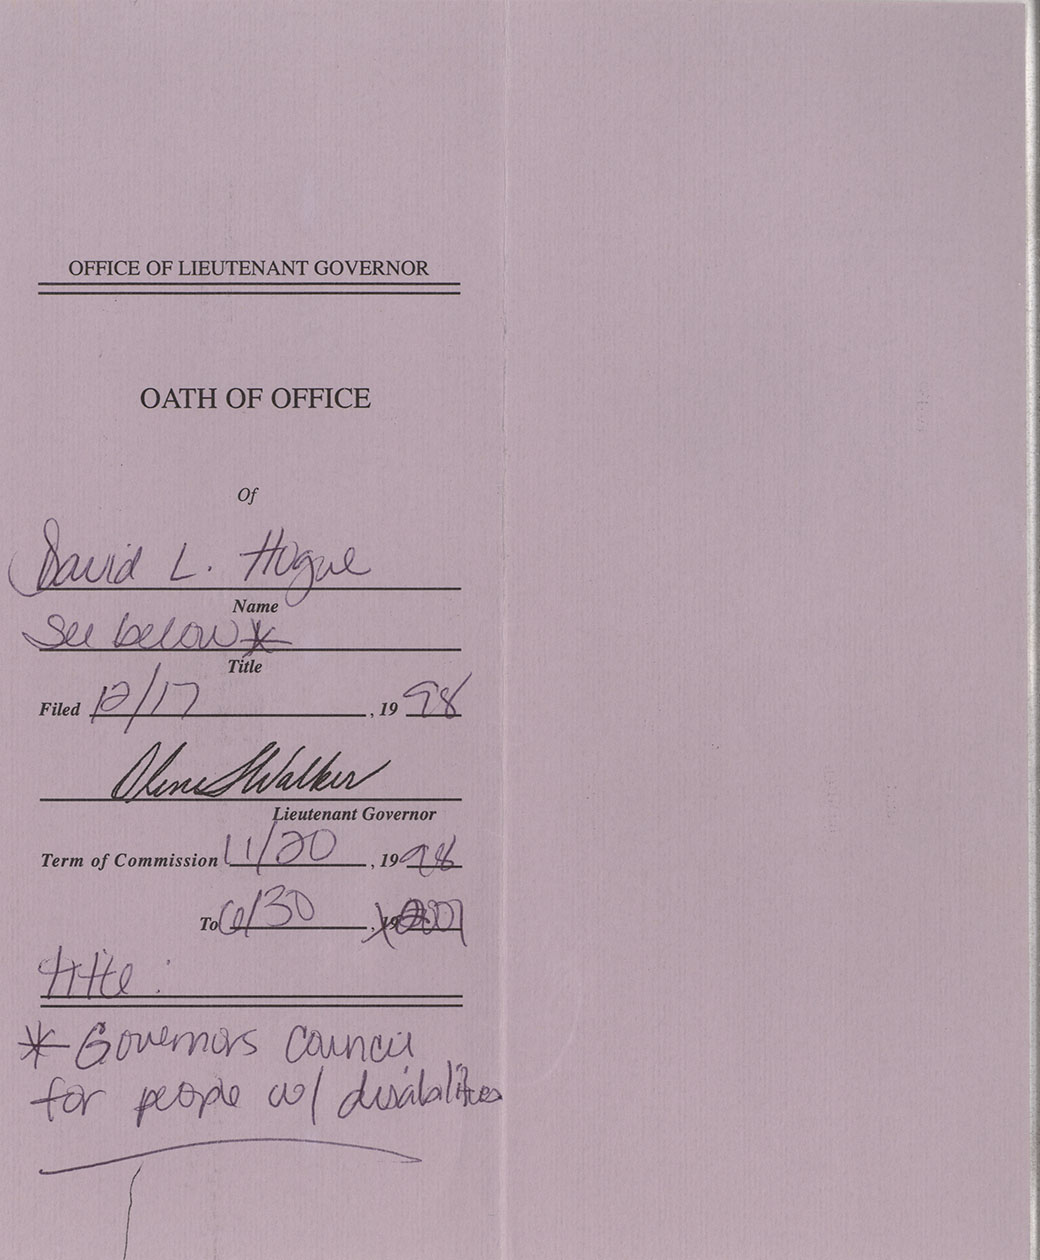 OFFICE OF LIEUTENANT GOVERNOR
OATH OF OFFICE
Of
David L. Hogue
Name
See below *
Title
Filed 12/17, 19 98
Olene S Walker
Lieutenant Governor
Term of Commission 11/20, 19 98
To 6/30, 19
title:
* Governors Council
for people w/ disabilities